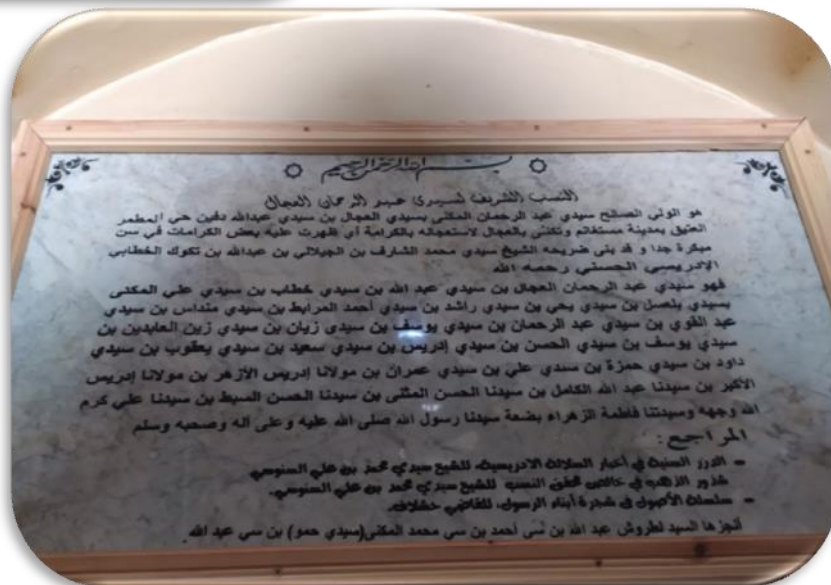 بسم الله الرحمن الرحيم
النسب الشريف لسيدي عبد الرحمان العجال
هو الولي الصالح سيدي عبد الرحمان المكنى بسيدي العجال بن سيدي عبدالله دفين حي المطمر
العتيق بمدينة مستغانم وتكنى بالعجال لاستعجاله بالكرامة أي ظهرت عليه بعض الكرامات في سن
مبكرة جدا و قد بنى ضريحه الشيخ سيدي محمد الشارف بن الجيلالي بن عبدالله بن تكوك الخطابي
الإدريسي الحسني رحمه الله
فهو سيدي عبد الرحمان العجال بن سيدي عبد الله بن سيدي خطاب بن سيدي علي المكنى
بسيدي بلعسل بن سيدي يحي بن سيدي راشد بن سيدي أحمد المرابط بن سيدي منداس بن سيدي
عبد القوي بن سيدي عبد الرحمان بن سيدي يوسف بن سيدي زيان بن سيدي زين العابدين بن
سيدي يوسف بن سيدي الحسن بن سيدي إدريس بن سيدي سعيد بن سيدي يعقوب بن سيدي
داود بن سيدي حمزة بن سدي علي بن سيدي عمران بن مولانا إدريس الأزهر بن مولانا إدريس
الأكبر بن سيدنا عبد الله الكامل بن سيدنا الحسن المثنى بن سيدنا الحسن السبط بن سيدنا علي كرم
الله وجهه وسيدتنا فاطمة الزهراء بضعة سيدنا رسول الله صلى الله عليه وعلى آله وصحبه وسلم
المراجع :
- الدرر السنية في أخبار السلالة الإدريسية، للشيخ سيدي محمد بن علي السنوسي.
شذور الذهب في محقق النسب للشيخ سيدي محمد بن علي السنوسي.
- سلسلة الأصول في شجرة أبناء الرسول، للقاضي حشلاف.
أنجزها السيد لطروش عبد الله بن سي أحمد بن سي محمد المكنى(سيدي حمو) بن سي عبد الله.